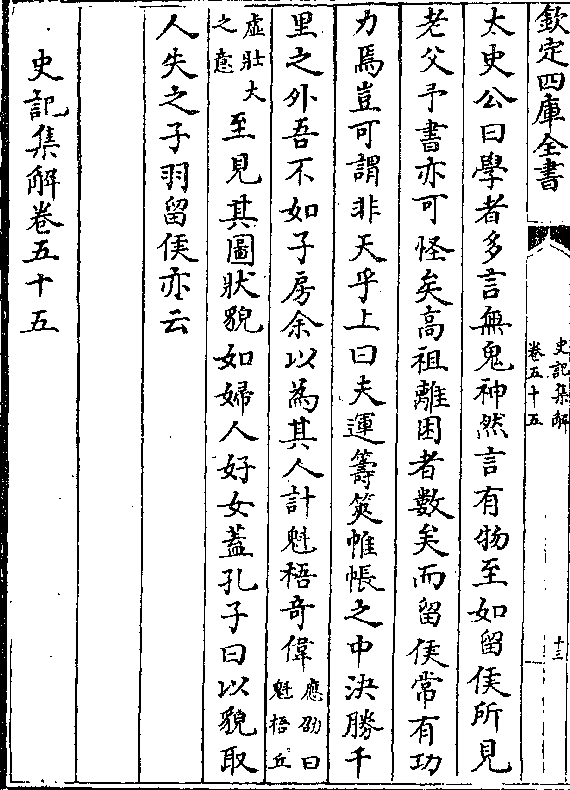 欽定四庫全書
史記集解
卷五十五
十三
太史公曰學者多言無鬼神然言有物至如留侯所見
老父予書亦可怪矣高祖離困者數矣而留侯常有功
力焉豈可謂非天乎上曰夫運籌筴帷帳之中決勝千
里之外吾不如子房余以為其人計魁梧奇偉應劭曰
魁梧丘
虛壯大
之意至見其圖狀貌如婦人好女蓋孔子曰以貌取
人失之子羽留侯亦云
史記集解卷五十五